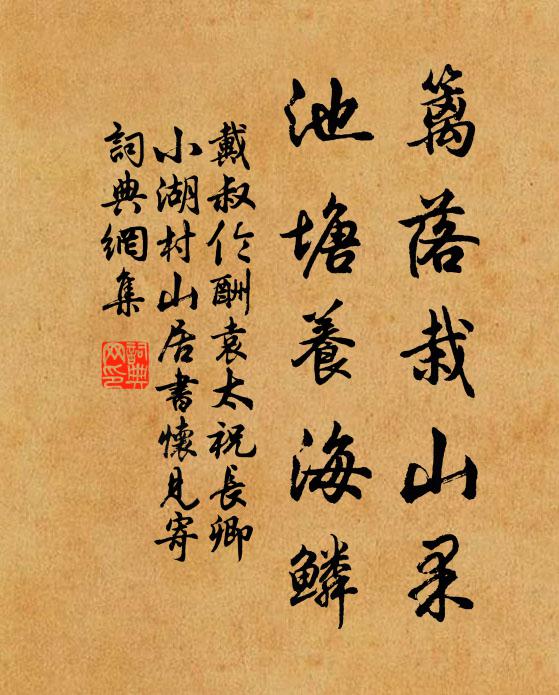 籬落栽山果
池塘養海鱗
戴叔伦酬袁太祝長卿
小湖村山居書懷見寄
詞典網集
詞典网印